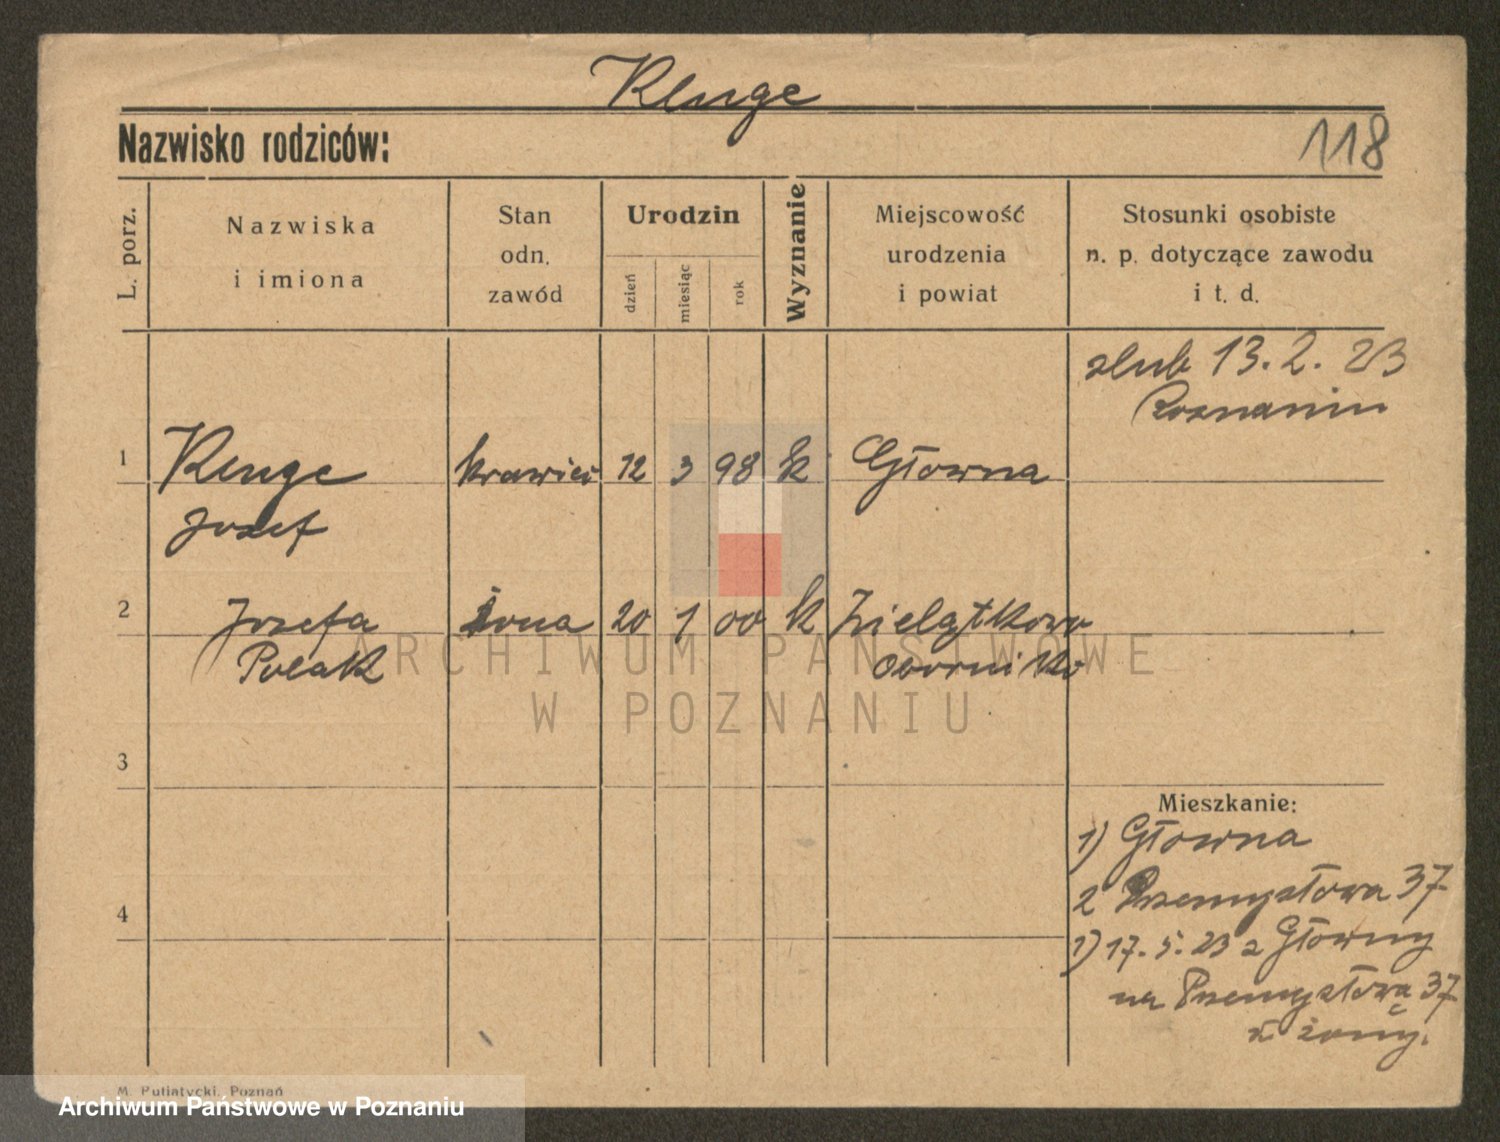 Kluge
Nazwisko rodziców:
118
L. porz.
Nazwiska
i imiona
Stan
odn.
zawód
Urodzin
dzień
miesiąc
rok
Wyznanie
Miejscowość
urodzenia
i powiat
Stosunki osobiste
n. p. dotyczące zawodu
i t. d.
slub 13. 2. 23
Poznaniu
1 Kluge krawiec 12 3 98 k Głowna
Jozef
2 Jozefa żona 20 1 00 k Zielątkowo
Polak Oborniki
ARCHIWUM PAŃSTWOWE
W POZNANIU
3
Mieszkanie:
1) Głowna
2 Przemysłowa 37
4
1) 17. 5. 23 z Głowny
na Przemysłową 37
żony.
M. Putiatycki, Poznań
Archiwum Państwowe w Poznaniu